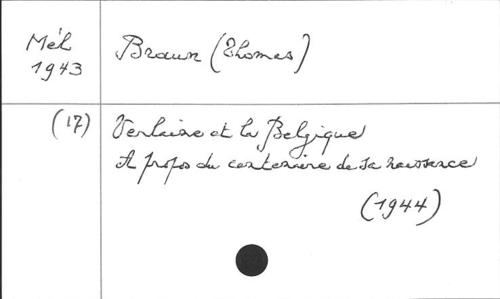 Mél
1943
Braun (Thomas)
(17)
Verlaine et la Belgique
A propos du centenaire de sa naissance
(1944)